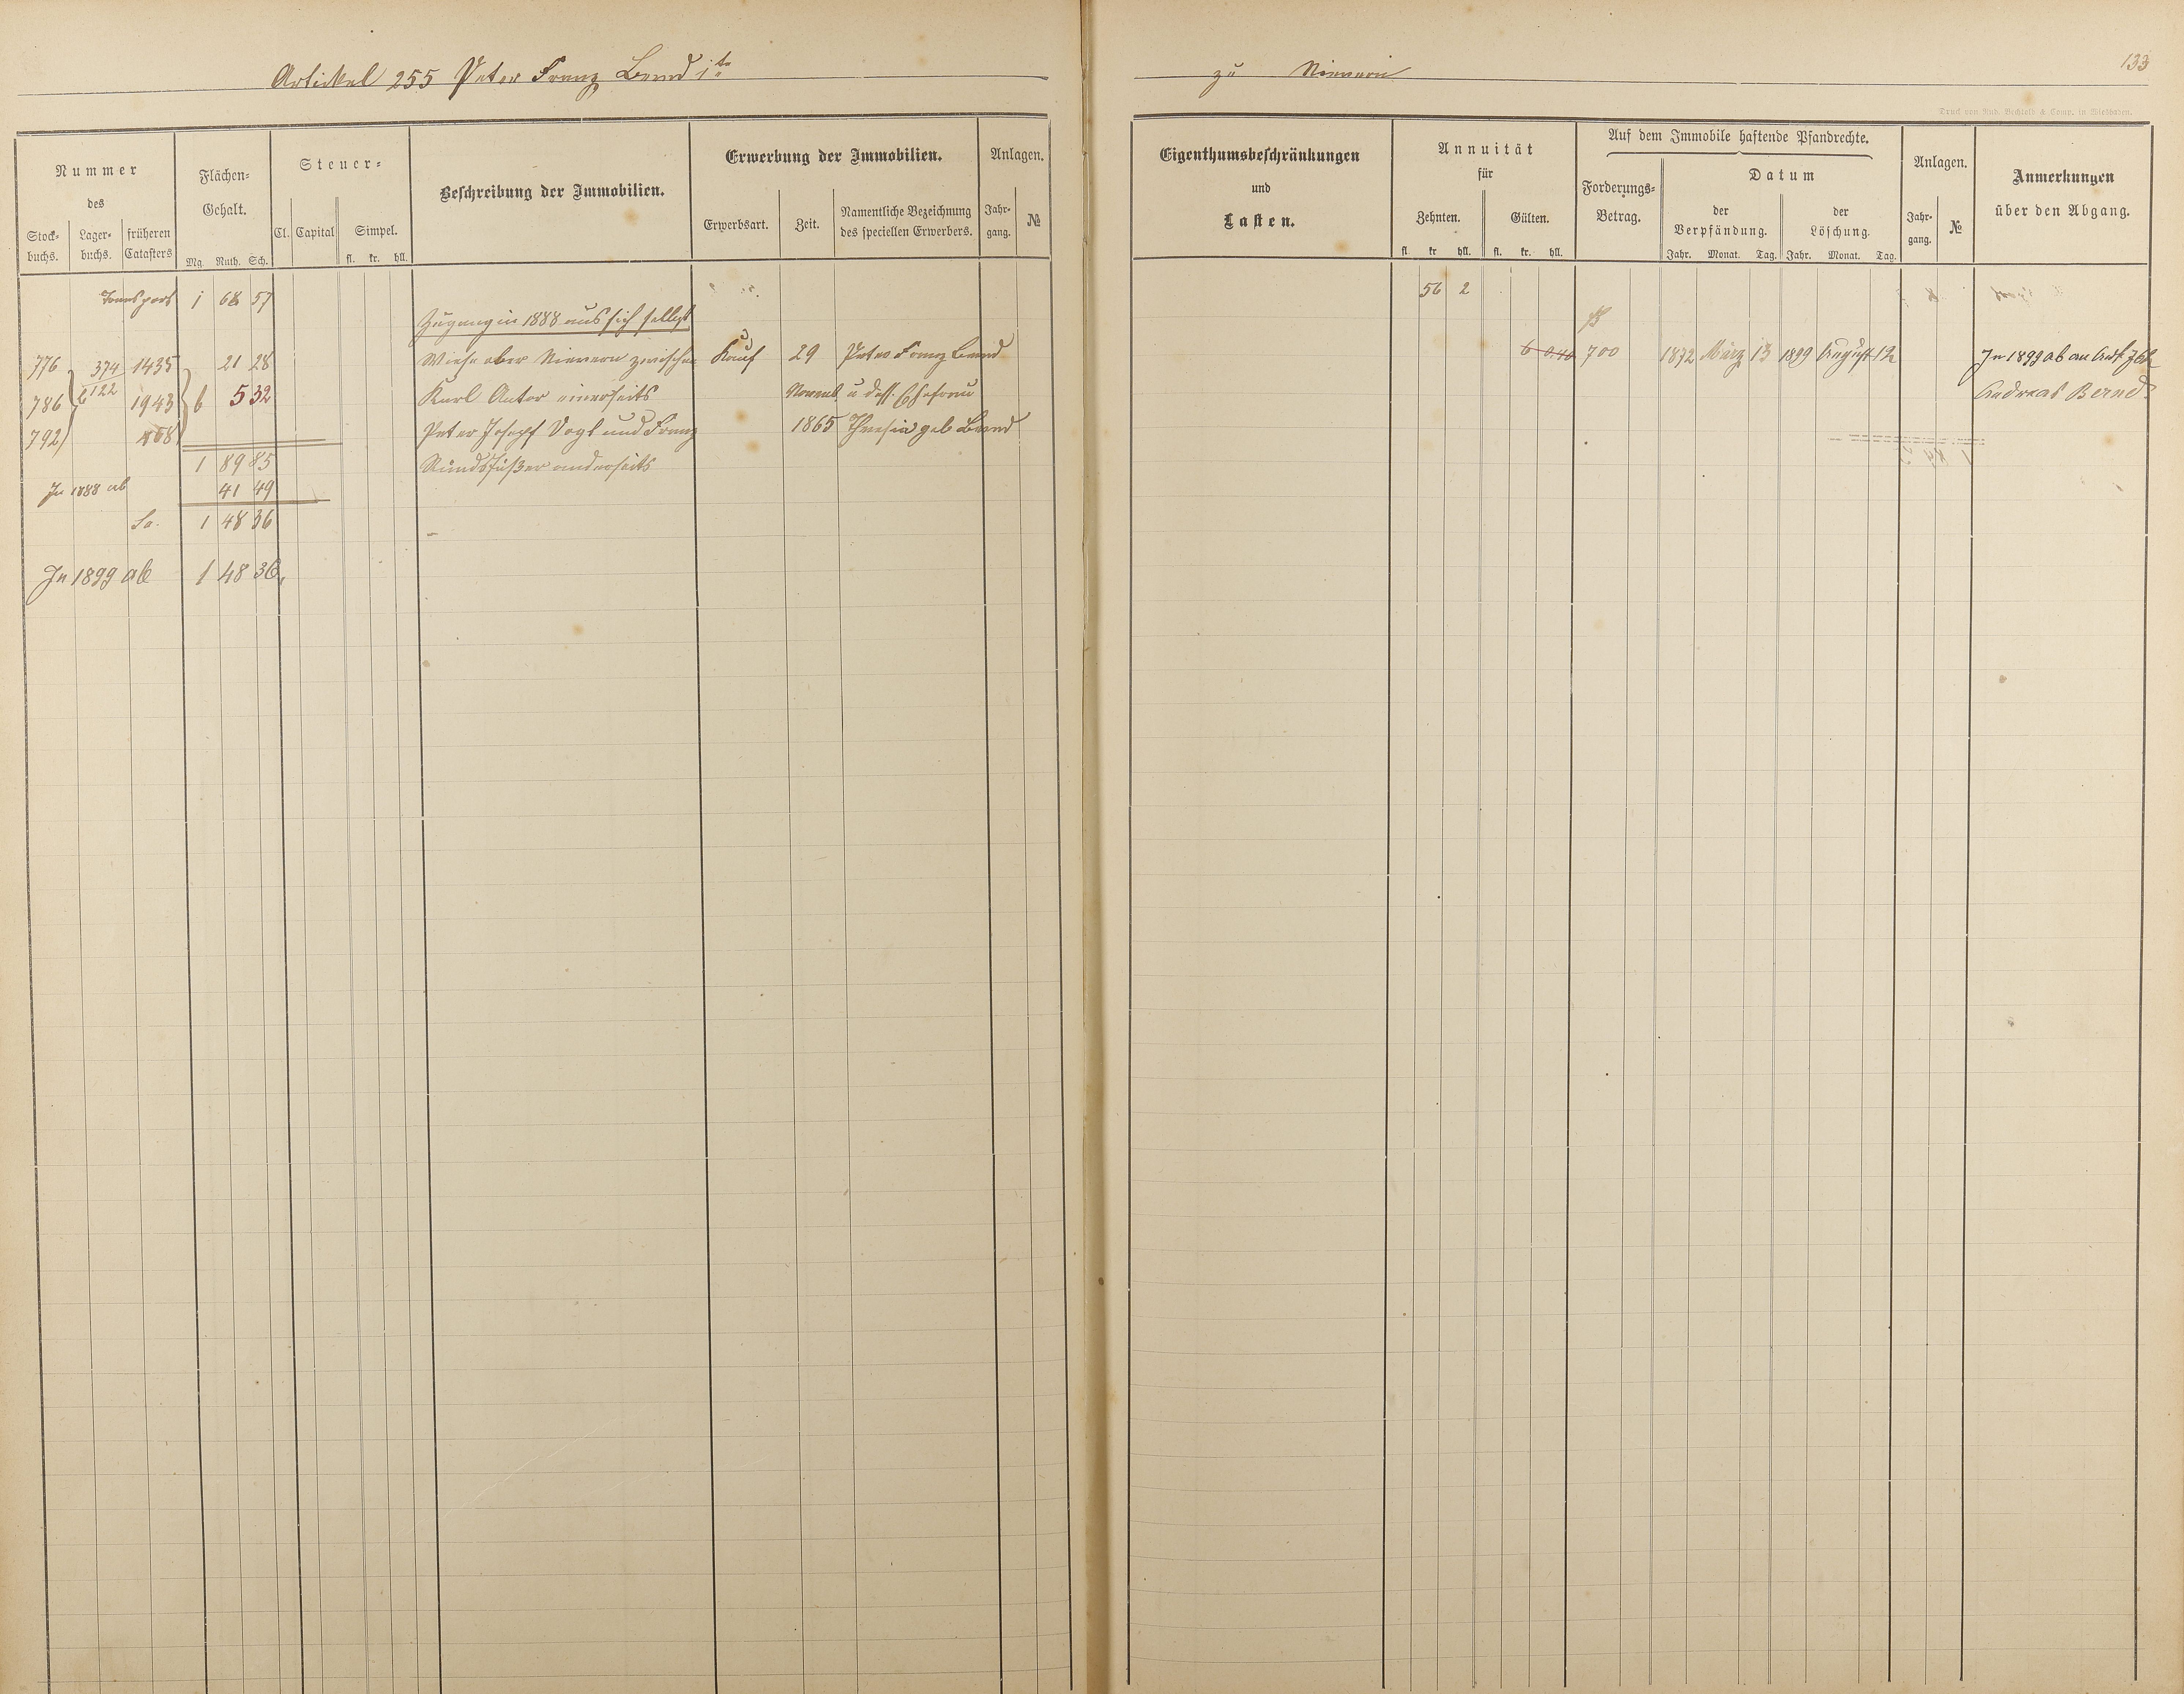 Artikel 255 Peter Franz Bernd 1te
zu Nievern
133
Druck von Rud. Bechtold & Comp. in Wiesbaden.
Nummer
des
Stock-
buchs.
Lager-
buchs.
früheren
Catasters
Flächen-
Gehalt.
Mg. Ruth. Sch.
Steuer-
Cl. Capital Simpel.
fl. kr. hll.
Beschreibung der Immobilien.
Erwerbung der Immobilien.
Erwerbsart. Zeit.
Namentliche Bezeichnung
des speciellen Erwerbers.
Anlagen.
Jahr-
gang.
№
Eigenthumsbeschränkungen
und
Lasten.
Annuität
für
Zehnten. Gülten.
fl. kr hll. fl. kr. hll.
Auf dem Immobile haftende Pfandrechte.
Forderungs-
Betrag.
Datum
der
Verpfändung.
der
Löschung.
Jahr. Monat. Tag. Jahr. Monat. Tag.
Anlagen.
Jahr-
gang.
№
Anmerkungen
über den Abgang.
Transport 1 68 57
56 2
Zugang in 1888 aus sich selbst
776 374 1435 21 28 Wiese ober Nievern zwischen Kauf 29 Peter Franz Bernd
700 1872 März 13 1899 August 12 In 1899 ab an Art
786 122 1943 6 532 Karl Anton einerseits Novemb u dess. Ehefrau
Andreas Bernd
792 Peter Josef Vogt und Franz 1865 Thresia geb Bernd
1 89 85 anderseits
In 1888 ab 41 49
Sa. 1 48 36
In 1899 ab 1 48 36